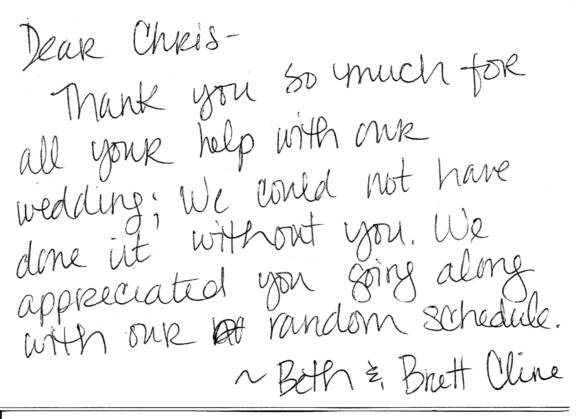 Dear Chris-
Thank you so much for
all your help with our
wedding; We could not have
done it without you. We
appreciated you going along
with our random schedule.
~ Beth & Brett Cline